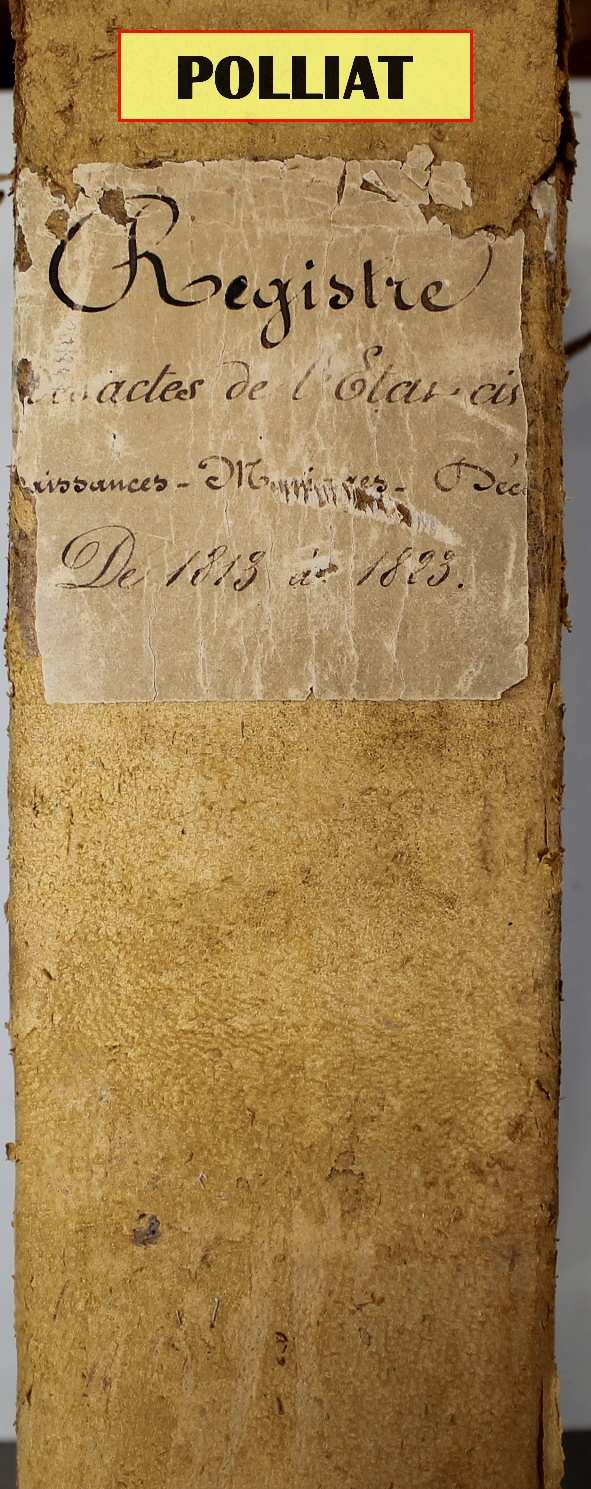 POLLIAT
Registre
actes de l'Etat cis
aissances - Mariages - Déc
De 1813 à 1823.